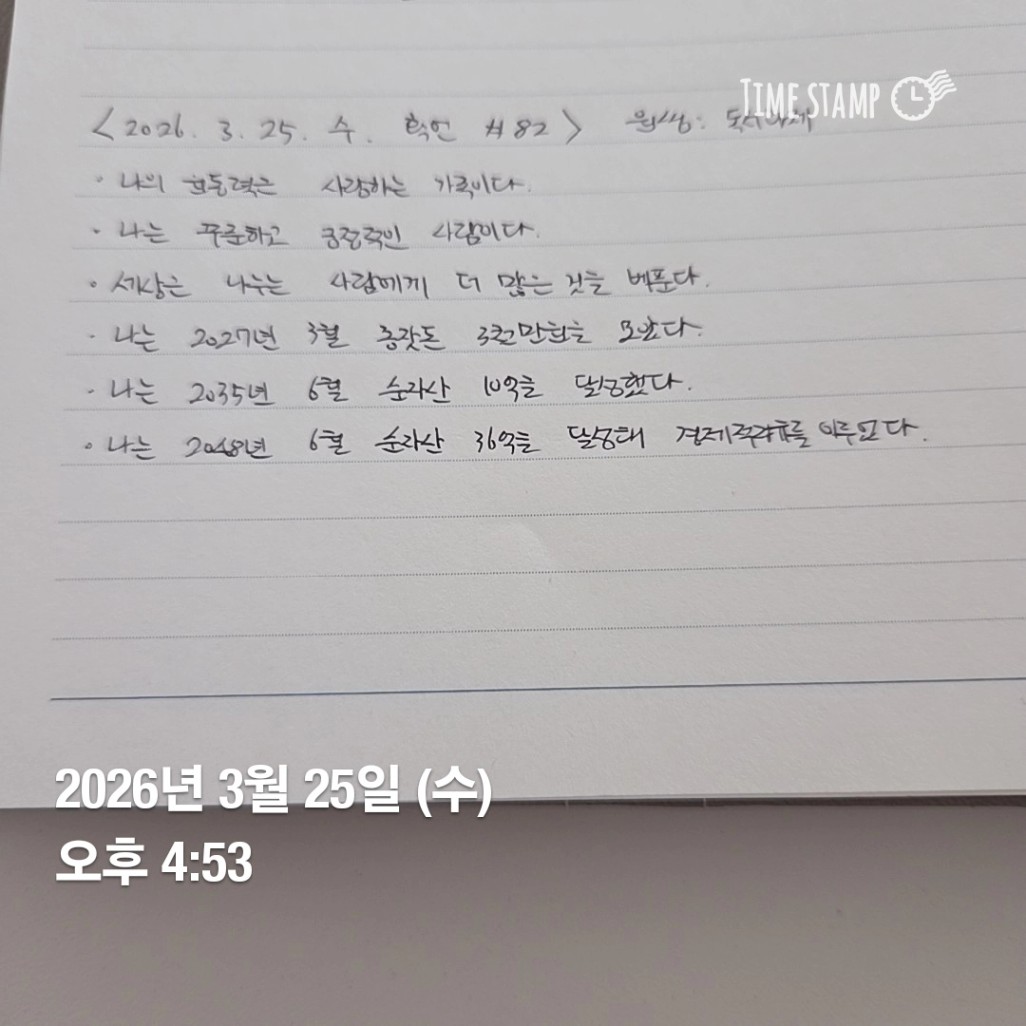 TIME STAMP
<2026. 3. 25. 수. 확언 #82>
· 나의 원동력은 사랑하는 가족이다.
· 나는 꾸준하고 긍정적인 사람이다.
· 세상은 나누는 사람에게 더 많은 것을 베푼다.
· 나는 2027년 3월 종잣돈 3천만원을 모았다.
· 나는 2035년 6월 순자산 10억을 달성했다.
· 나는 2048년 6월 순자산 36억을 달성해 경제적자유를 이루었다.
2026년 3월 25일 (수)
오후 4:53